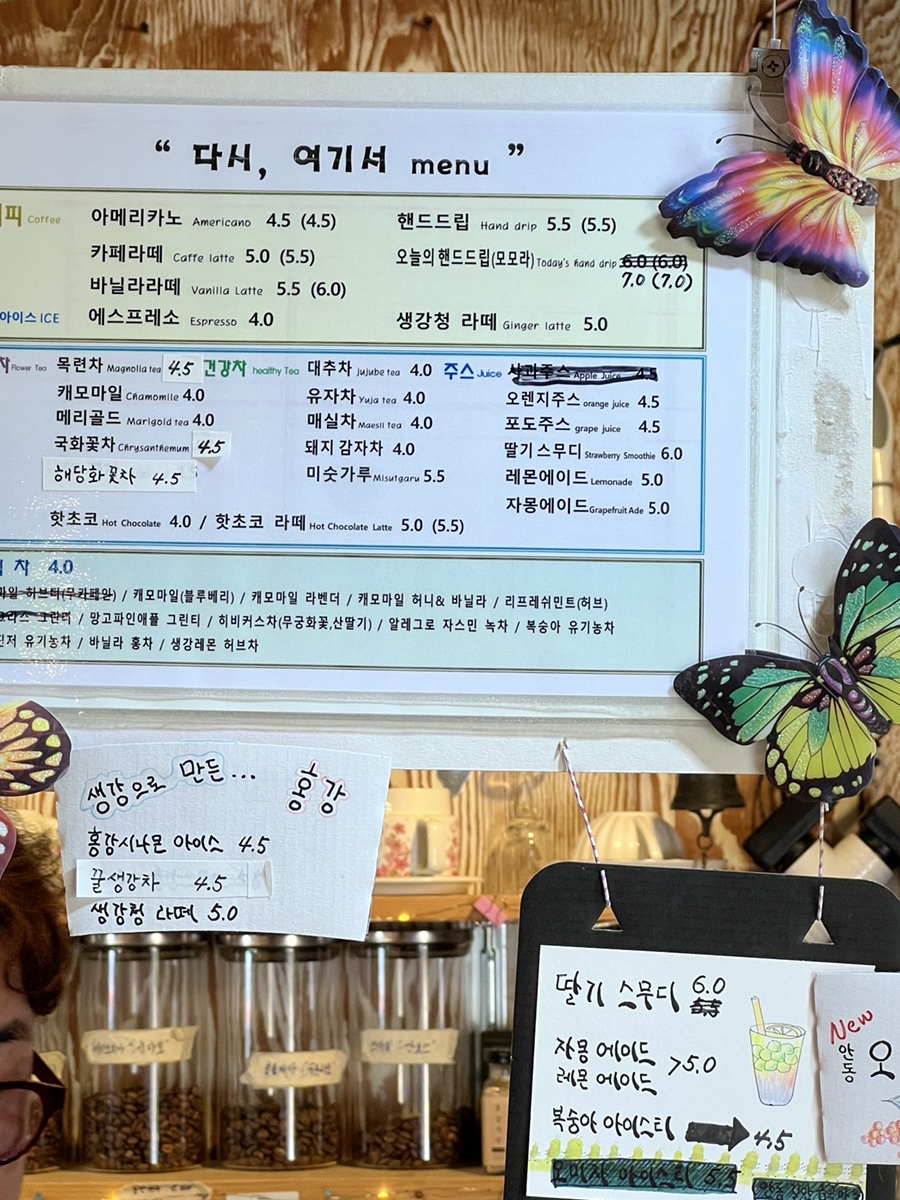 “ 다시, 여기서 menu ”
피 Coffee 아메리카노 Americano 4.5 (4.5) 핸드드립 Hand drip 5.5 (5.5)
카페라떼 Caffe latte 5.0 (5.5) 오늘의핸드드립(모모라) Today's hand drip 6.0 (6.0)
7.0 (7.0)
바닐라라떼 Vanilla Latte 5.5 (6.0)
아이스 ICE 에스프레소 Espresso 4.0 생강청 라떼 Ginger latte 5.0
차 Flower Tea 목련차 Magnolia tea 4.5 건강차 healthy Tea 대추차 jujube tea 4.0 주스 Juice 사과주스 Apple Juice 4.5
캐모마일 Chamomile 4.0 유자차 Yuja tea 4.0 오렌지주스 orange juice 4.5
메리골드 Marigold tea 4.0 매실차 Maesil tea 4.0 포도주스 grape juice 4.5
국화꽃차 Chrysanthemum 4.5 돼지감자차 4.0 딸기스무디 Strawberry Smoothie 6.0
해당화꽃차 4.5 미숫가루 Misutgaru 5.5 레몬에이드 Lemonade 5.0
자몽에이드 Grapefruit Ade 5.0
핫초코 Hot Chocolate 4.0 / 핫초코 라떼 Hot Chocolate Latte 5.0 (5.5)
차 4.0
마일 허브티(무카페인) / 캐모마일(블루베리) / 캐모마일 라벤더 / 캐모마일 허니& 바닐라 / 리프레쉬민트(허브)
그린티 / 망고파인애플 그린티 / 히비커스차(무궁화꽃,산딸기) / 알레그로 자스민 녹차 / 복숭아 유기농차
진저 유기농차 / 바닐라 홍차 / 생강레몬 허브차
생강으로 만든... 홍강
홍강시나몬 아이스 4.5
꿀생강차 4.5
생강청 라떼 5.0
딸기 스무디 6.0
5.5
자몽 에이드
레몬 에이드 >5.0
복숭아 아이스티 4.5
오미자 아이스티 5.5
New
안동
오